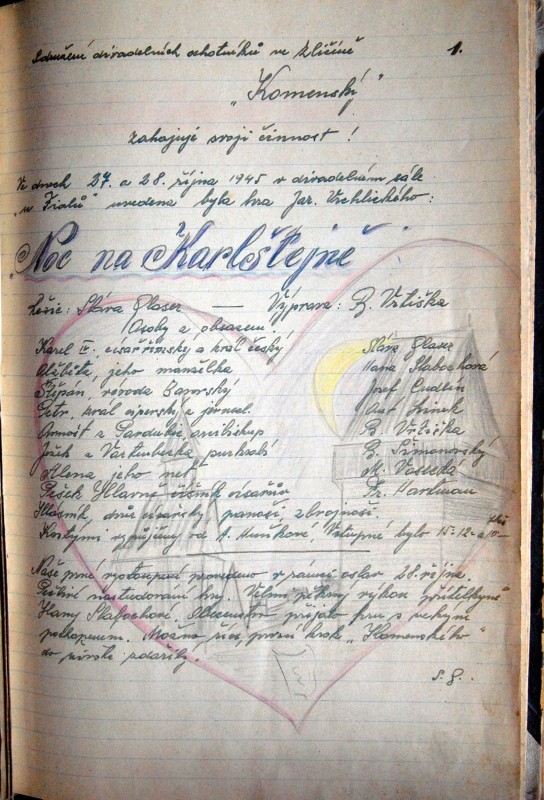 Sdružení divadelních ochotníků ve Zličíně 1.
"Komenský"
zahajuje svoji činnost!
Ve dnech 27. a 28. října 1945 v divadelním sále
"u Fialů" uvedena byla hra Jar. Vrchlického:
"Noc na Karlštejně"
Režie: Sláva Glaser — Výprava: B. Vrtiška
Osoby a obsazení:
Karel IV. císař římský a král český Sláva Glaser
Alžběta, jeho manželka Hana Slabochová
Štěpán, vévoda Bavorský Josef Cudlín
Petr, král cyperský a jerusal. Ant.
Arnošt z Pardubic, arcibiskup B. Vrtiška
Ješek z Vartenberka purkrabí B. Šimonovský
Alena jeho neť M.
Pešek Hlavně číšník císařův Fr. Hartman
Hlásník, dvůr císařský, panoši, zbrojnoši.
Kostýmy zapůjčeny od Vstupné bylo 15-12- a 10-
Naše prvé vystoupení provedeno v rámci oslav 28. října.
Pečlivé nastudování hry. Velmi pěkný výkon "přítelkyně"
Hany Slabochové. Obecenstvo přijalo hru s velkým
pochopením. Možno říci, první krok "Komenského"
se zdařily.
S. G.